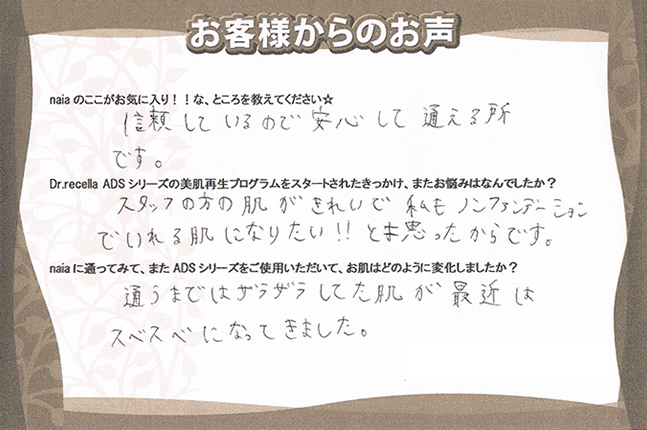 お客様からのお声
naiaのここがお気に入り！！な、ところを教えてください☆
信頼しているので安心して通える所
です。
Dr.recella ADSシリーズの美肌再生プログラムをスタートされたきっかけ、またお悩みはなんでしたか？
スタッフの方の肌がきれいで私もノンファンデーション
でいれる肌になりたい!!と思ったからです。
naiaに通ってみて、またADSシリーズをご使用いただいて、お肌はどのように変化しましたか？
通うまではザラザラしてた肌が最近は
スベスベになってきました。